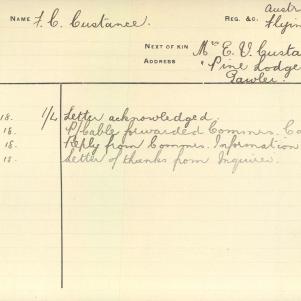 NAME F. C. Custance. REG. &C. Austr
Flyin
NEXT OF KIN Mrs E. V. Custa
ADDRESS "Pine Lodge
Gawler.
18. 1/L Letter acknowledged.
18. P/Cable forwarded Commrs. Ca
18. Reply from Commrs. Information
18. Letter of thanks from Inquirer.